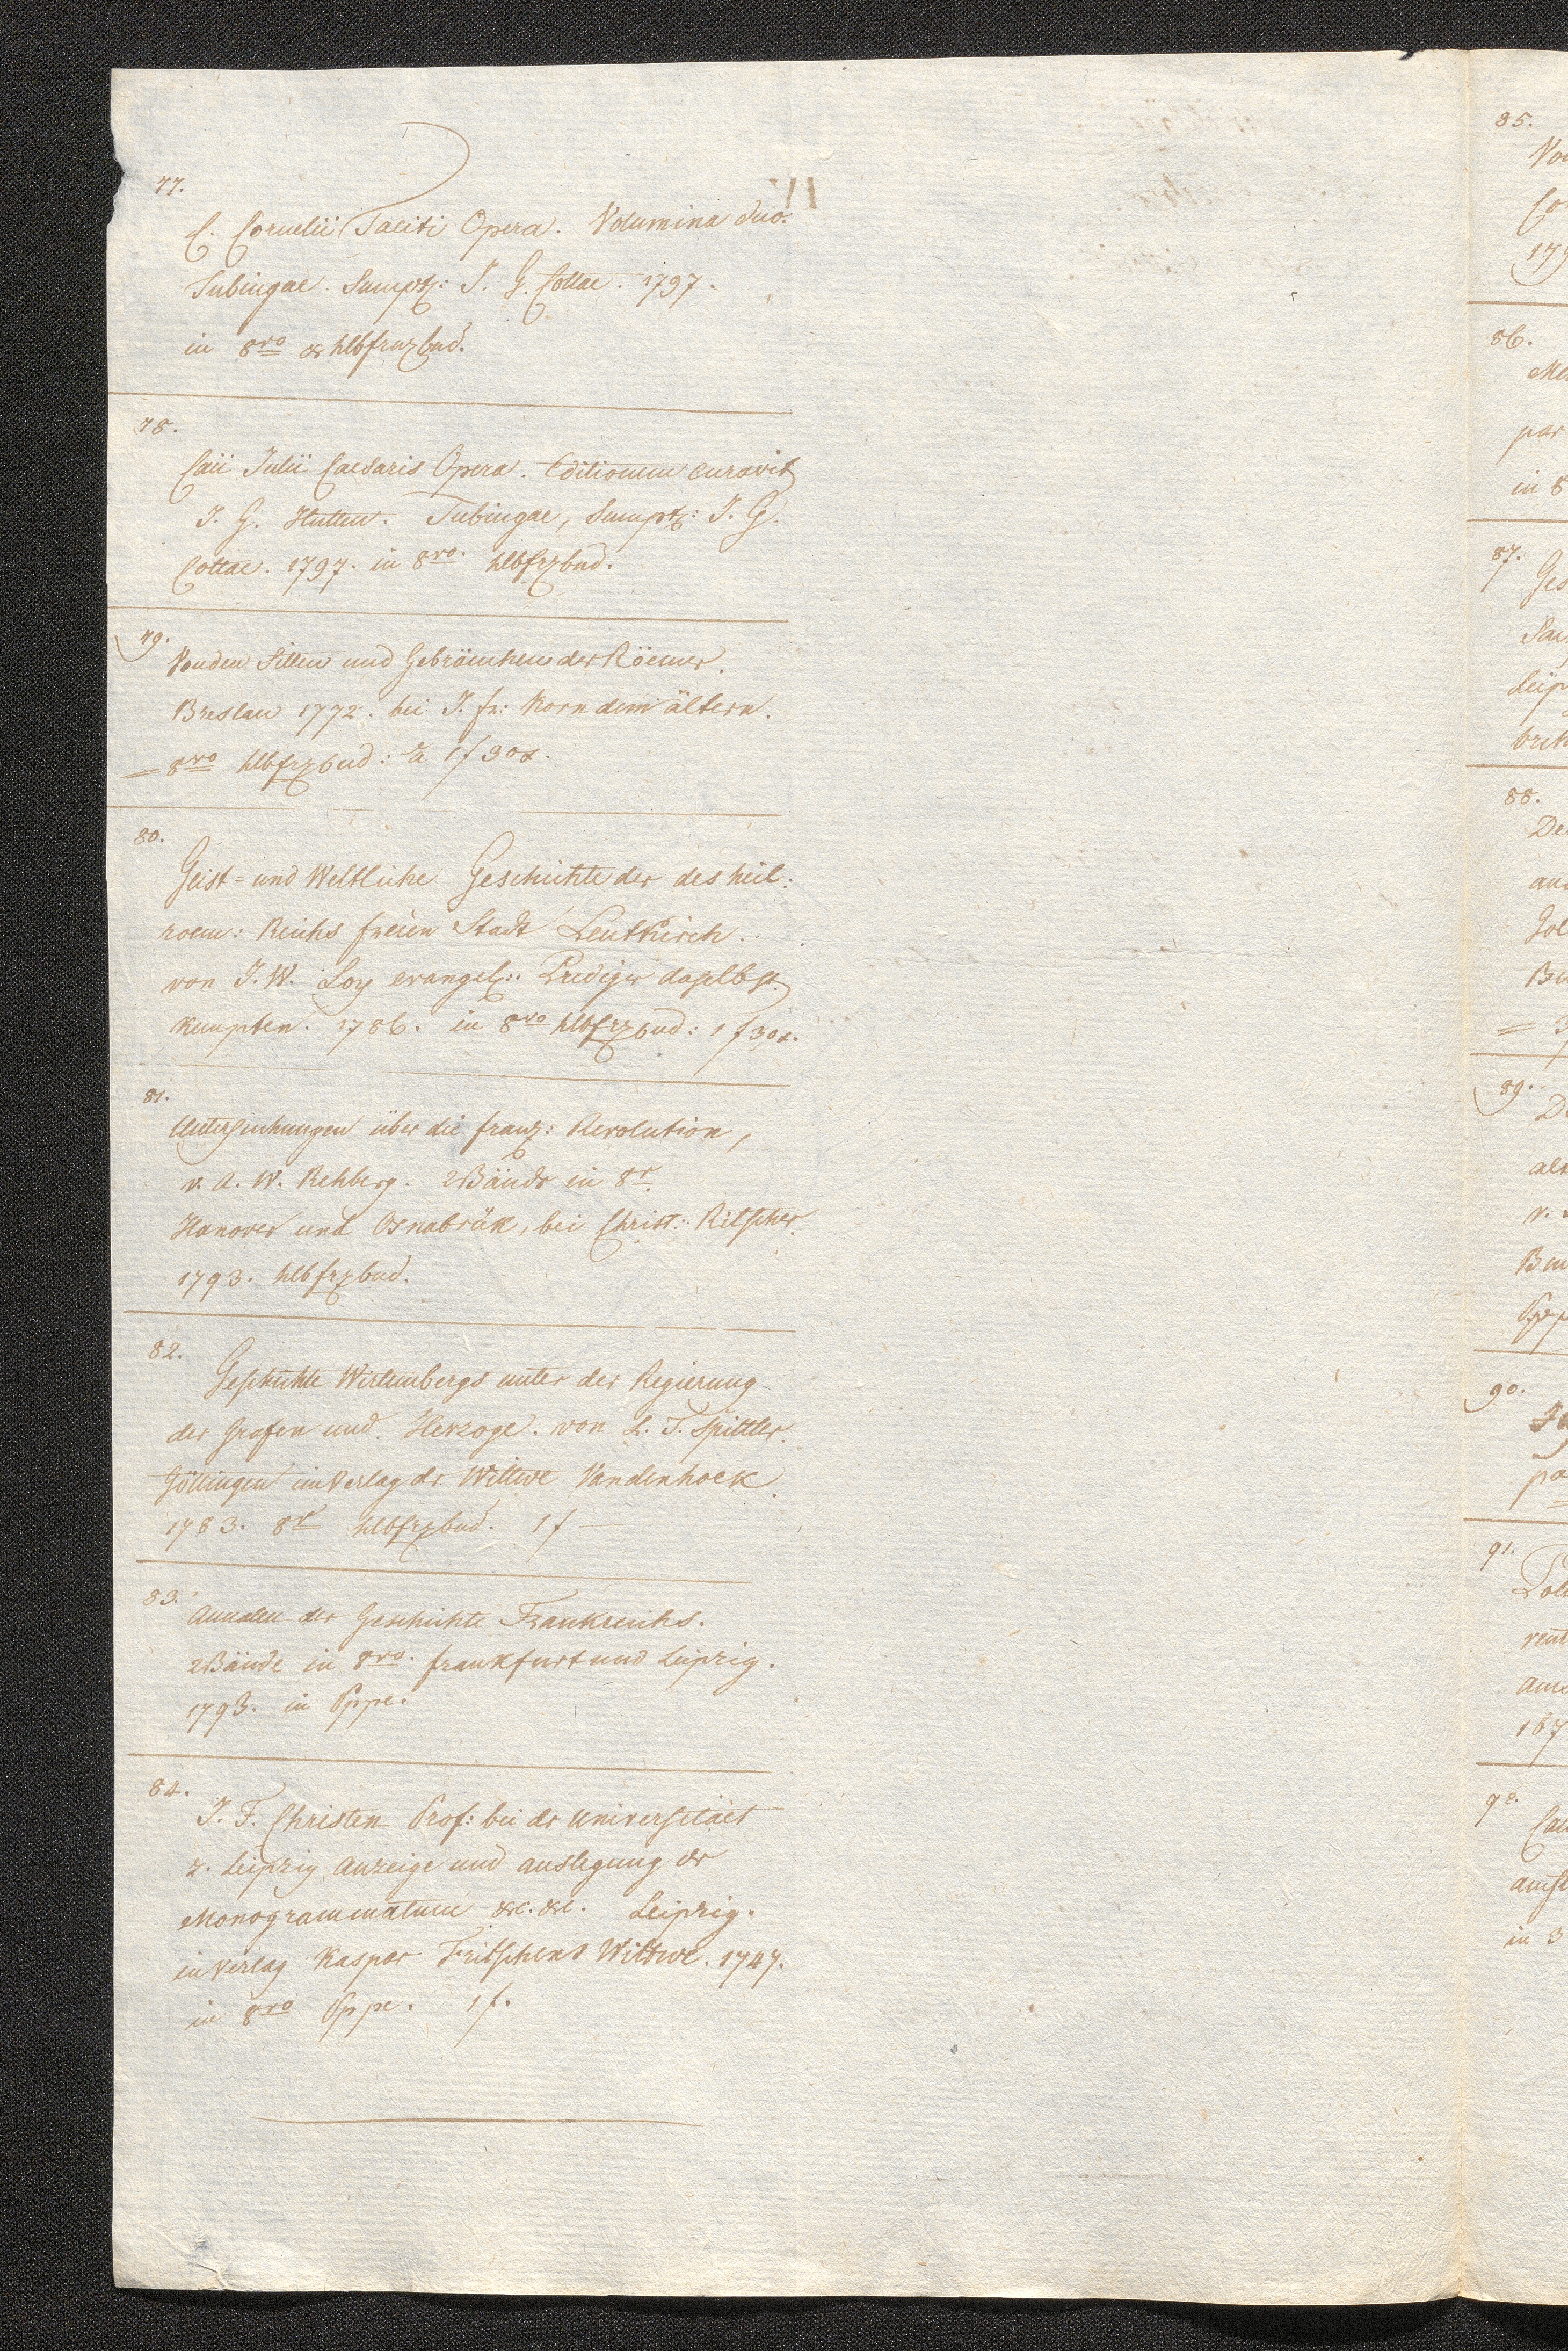 77.
C. Cornelii Taciti Opera. Volumina duo.
Tubingae. Sumpt: J. G. Cottae. 1797.
in 8vo hlbfrzbnd.
78.
Caii Julii Caesaris Opera. Editionem curavit
J. G. Hutten. Tubingae, Sumpt: J. G.
Cottae. 1797. in 8vo. hlbfrzbnd.
79.
Von den Sitten und Gebräuchen der Röemer.
Breslau 1772. bei J. fr: Korn dem ältern.
= 8vo hlbfrzbnd: à 1f 30x.
80.
Geist= und Weltliche Geschichte der des heil:
roem: Reichs freien Stadt Leutkirch.
von J. W. Loy evangel: Prediger daselbst.
Kempten. 1786. in 8vo hlbfrzbnd: 1f 30x.
81.
Untersuchungen über die franz: Revolution,
v. A. W. Rehberg. 2 Bände in 8v.
Hanover und Osnabrük, bei Christ: Ritscher.
1793. hlbfrzbnd.
82.
Geschichte Wirtembergs unter der Regierung
der Grafen und Herzoge. von L. T. Spittler.
Göttingen im Verlag der Wittwe Vandenhoek.
1783. 8v hlbfrzbnd. 1f —
83.
Annalen der Geschichte Frankreichs.
2 Bände in 8vo. frankfurt und Leipzig.
1793. in Pppe.
84.
J. F. Christen Prof: bei dr Universitäet
z. Leipzig, Anzeige und auslegung der
Monogrammatum &c. &c. Leipzig.
in Verlag Kaspar Fritschens Wittwe. 1747.
in 8vo Pppe. 1f.
85.
86.
par
in 8
87.
88.
89.
90.
91.
92.
in 3